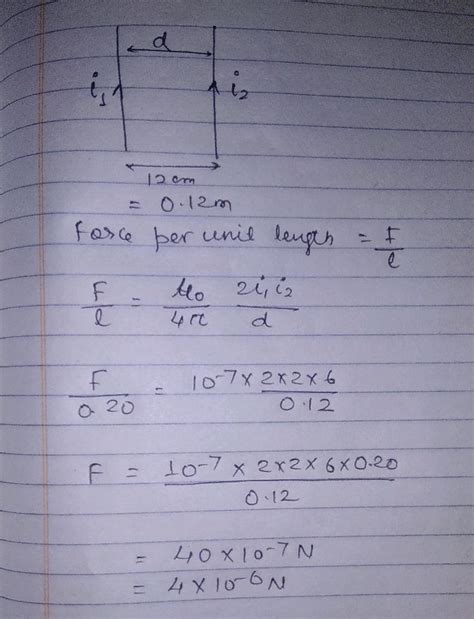 d
i₁ i₂
12 cm
= 0.12m
Force per unit length = F/l
F/l = μ₀/4π 2i₁i₂/d
F/0.20 = 10⁻⁷ × 2×2×6/0.12
F = 10⁻⁷ × 2×2×6×0.20/0.12
= 40×10⁻⁷ N
= 4×10⁻⁶ N